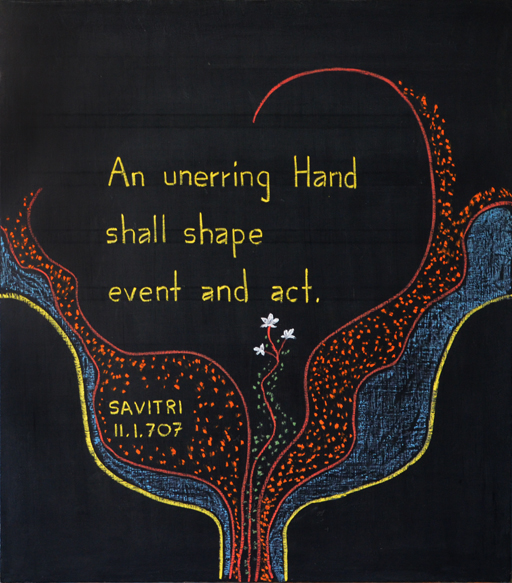 An unerring Hand
shall shape
event and act.
SAVITRI
11.1.707